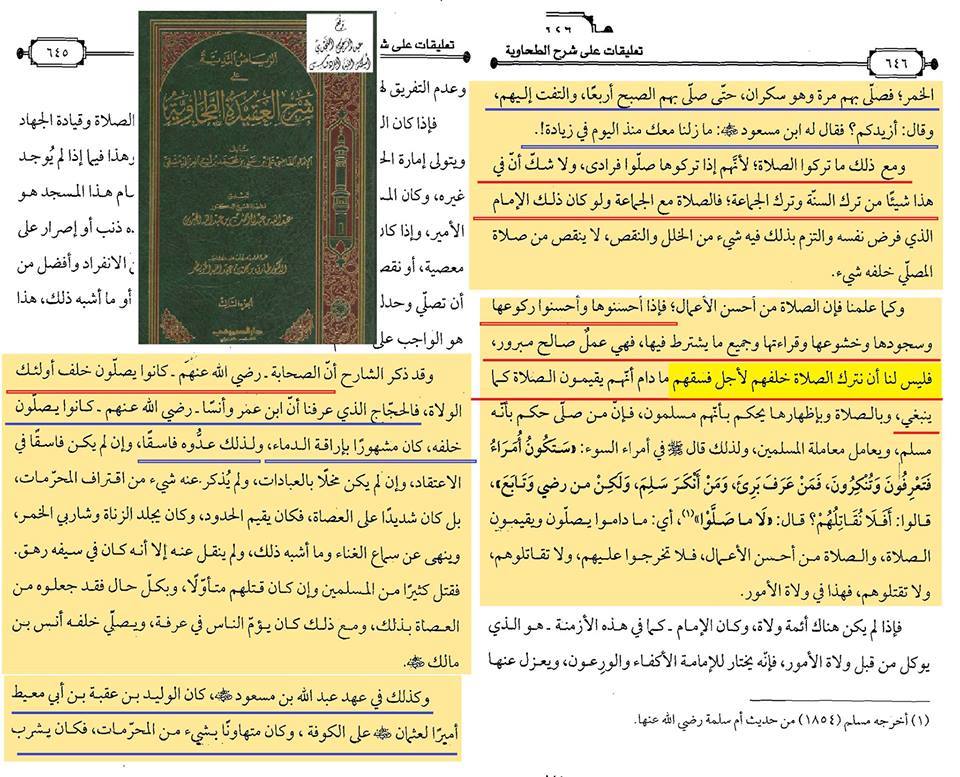 تعليقات على ش
٦٤٥
وعدم التفريق
فإذا كان ال
الصلاة وقيادة الجهاد
ويتولى إمارة الح
وهذا فيما إذا لم يُوجد
غيره، وكان الم
ـام هـذا المسجد هـو
الأمير، وإذا كان
ـده ذنب أو إصرار على
معصية، أو نقص
الانفراد وأفضل من
أن تصلّي وحدك
أو ما أشبه ذلك، هذا
هو الواجب على
الرياض الندية
على
شرح العقيدة الطحاوية
الجزء الثالث
وقد ذكر الشارح أنّ الصحابة ـ رضي الله عنهم ـ كانوا يصلّون خلف أولئـك
الولاة، فالحجّاج الذي عرفنا أنّ ابن عمر وأنسًا ـ رضي الله عنهم ـ كـانوا يصلّون
خلفه، كان مشهورًا بإراقـة الدماء، ولـذلك عـدُّوه فاسـقًا، وإن لم يكـن فاسقًا في
الاعتقاد، وإن لم يكن مخلًا بالعبادات، ولم يُذكـر عنه شيء من اقتراف المحرّمات،
بل كان شديدًا على العصاة، فكان يقيم الحدود، وكان يجلد الزناة وشاربي الخمر،
وينهى عن سماع الغناء وما أشبه ذلك، ولم ينقل عنه إلا أنه كـان في سيفه رهـق.
فقتل كثيرًا مـن المسلمين وإن كـان قتلهم متـأوّلًا، وبكـلّ حـال فقـد جعلوه مـن
العصاة بـذلك، ومـع ذلـك كـان يـؤمّ الناس في عرفـة، ويصلّي خلفـه أنس بـن
مالك ﷺ.
وكذلك في عهد عبد الله بن مسعود ﷺ، كان الوليد بـن عقبة بـن أبي معيط
أميرًا لعثمان ﷺ على الكوفة، وكان متهاونًا بشيء مـن المحرّمات، فكـان يشرب
٦٤٦
تعليقات على شرح الطحاوية
٦٤٦
الخمر؛ فصلّى بهم مرة وهو سكران، حتّى صلّى بهم الصبح أربعًا، والتفت إليـهم،
وقال: أزيدكم؟ فقال له ابن مسعود ﷺ: ما زلنا معك منذ اليوم في زيادة!.
ومع ذلك ما تركوا الصلاة؛ لأنّهم إذا تركوها صلّوا فرادى، ولا شكّ أنّ في
هذا شيئًا من ترك السنّة وترك الجماعة؛ فالصلاة مع الجماعة ولو كان ذلـك الإمام
الذي فرض نفسه والتزم بذلك فيه شيء من الخلل والنقص، لا ينقص من صلاة
المصلّي خلفه شيء.
وكما علمنا فإن الصلاة من أحسن الأعمال؛ فإذا أحسنوها وأحسنوا ركوعها
وسجودها وخشوعها وقراءتها وجميع ما يشترط فيها، فهي عملٌ صالح مبرور،
فليس لنا أن نترك الصلاة خلفهم لأجل فسقهم ما دام أنّهم يقيمون الصلاة كـما
ينبغي، وبالصلاة وبإظهارها يحكم بأنّهم مسلمون، فإنّ مـن صلّى حكم بأنّـه
مسلم، ويعامل معاملة المسلمين، ولذلك قال ﷺ في أمراء السوء: «سَتَكُونُ أُمَرَاءُ
فَتَعْرِفُونَ وَتُنْكِرُونَ، فَمَنْ عَرَفَ بَرِئَ، وَمَنْ أَنْكَرَ سَلِمَ، وَلَكِنْ مـن رضي وَتَـابَعَ»،
قالوا: أَفَلَا نُقَاتِلُهُمْ؟ قـال: «لَا مـا صَلَّوْا»(١)، أي: مـا دامـوا يصـلّون ويقيمـون
الصـلاة، والصـلاة مـن أحسـن الأعـمال، فـلا تخرجـوا علـيهم، ولا تقـاتلوهم،
ولا تقتلوهم، فهذا في ولاة الأمور.
فإذا لم يكن هناك أئمة ولاة، وكـان الإمام ـ كـما في هـذه الأزمنـة ـ هـو الـذي
يوكل من قبل ولاة الأمور، فإنّه يختار للإمامـة الأكفـاء والورعـون، ويعـزل عنهـا
(١) أخرجه مسلم (١٨٥٤) من حديث أم سلمة رضي الله عنها.